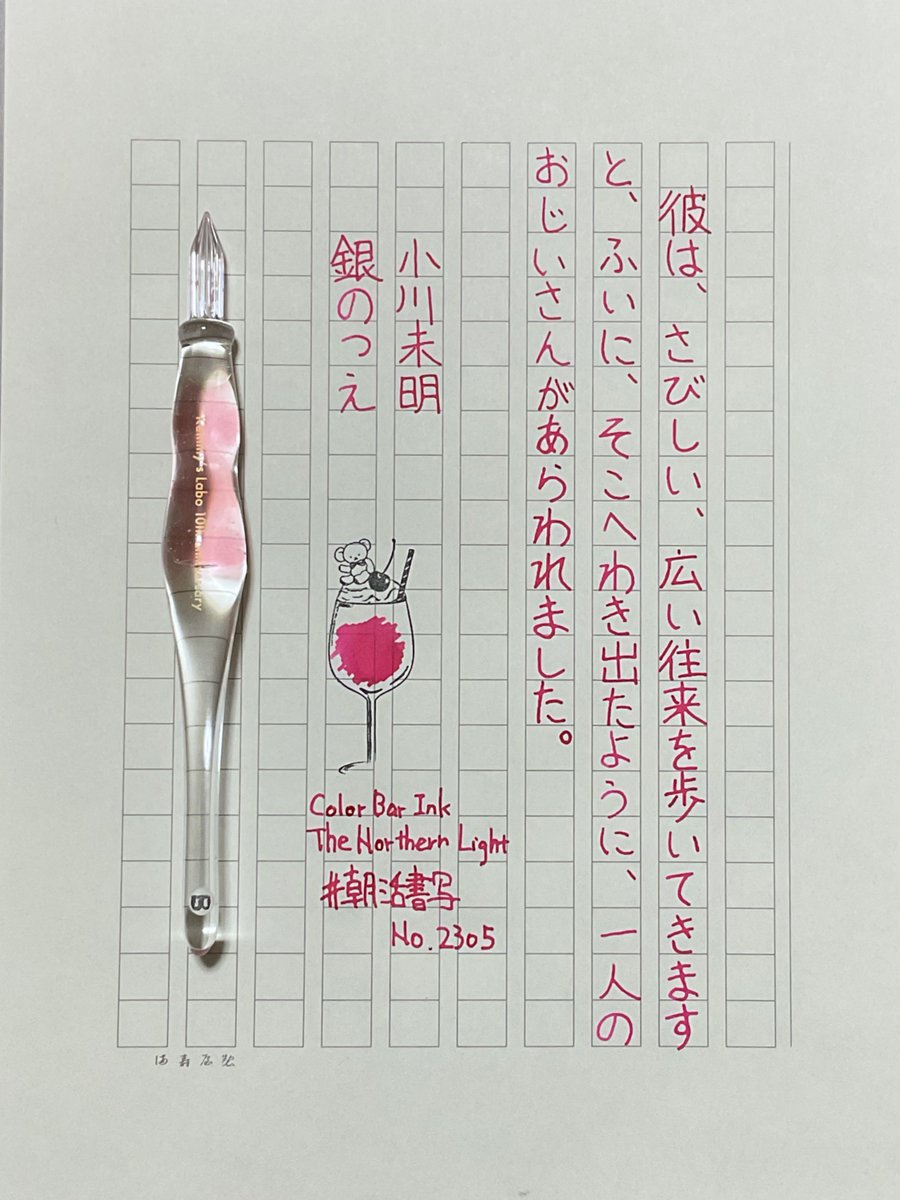 彼は、さびしい、広い往来を歩いてきます
と、ふいに、そこへわき出たように、一人の
おじいさんがあらわれました。
小川未明
銀のつえ
Color Bar Ink
The Northern Light
#朝活書写
No.2305
B